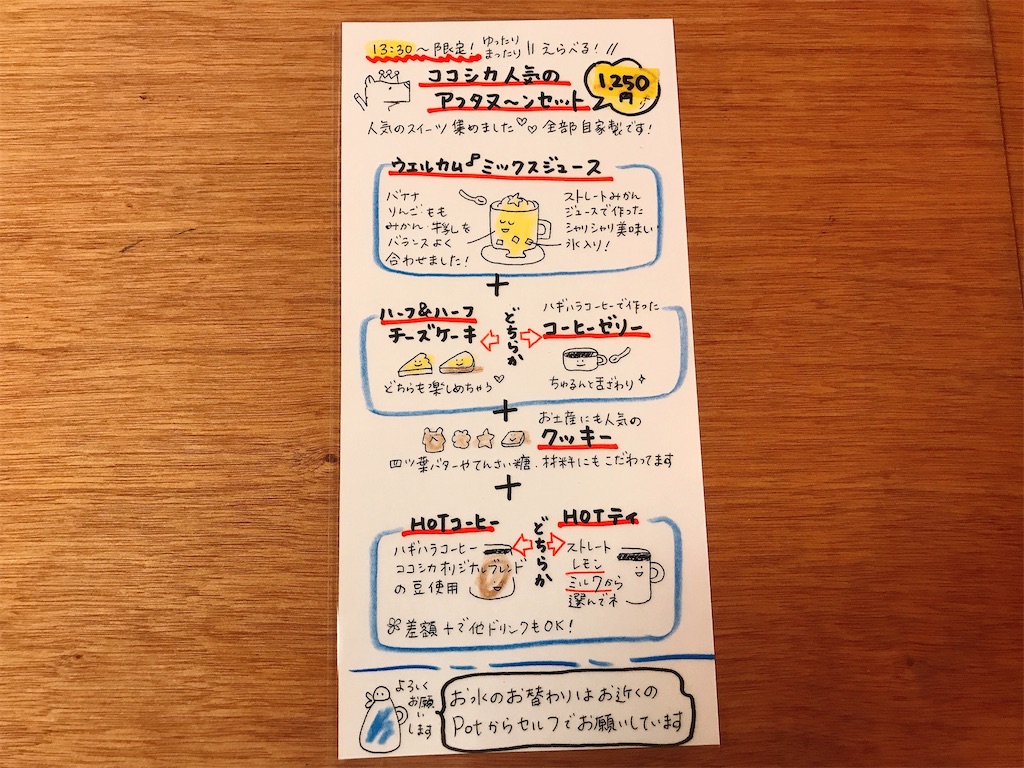 13:30〜限定! ゆったり まったり \\ えらべる! //
ココシカ人気の
アフタヌ〜ンセット
1,250円
人気のスイーツ集めました♡♡全部自家製です!
ウェルカム ミックスジュース
バナナ
りんご・もも
みかん・牛乳を
バランスよく
合わせました!
ストレートみかん
ジュースで作った
シャリシャリ美味い
氷入り!
+
ハーフ&ハーフ
チーズケーキ
どちらも楽しめちゃう♡
どちらか
ハギハラコーヒーで作った
コーヒーゼリー
ちゅるんと舌ざわり
+
お土産にも人気の
クッキー
四ツ葉バターやてんさい糖、材料にもこだわってます
+
HOTコーヒー
ハギハラコーヒー
ココシカオリジナルブレンド
の豆使用
どちらか
HOTティ
ストレート
レモン
ミルクから
選んでネ
差額+で他ドリンクもOK!
よろしく
お願い
します
お水のお替わりはお近くの
Potからセルフでお願いしています